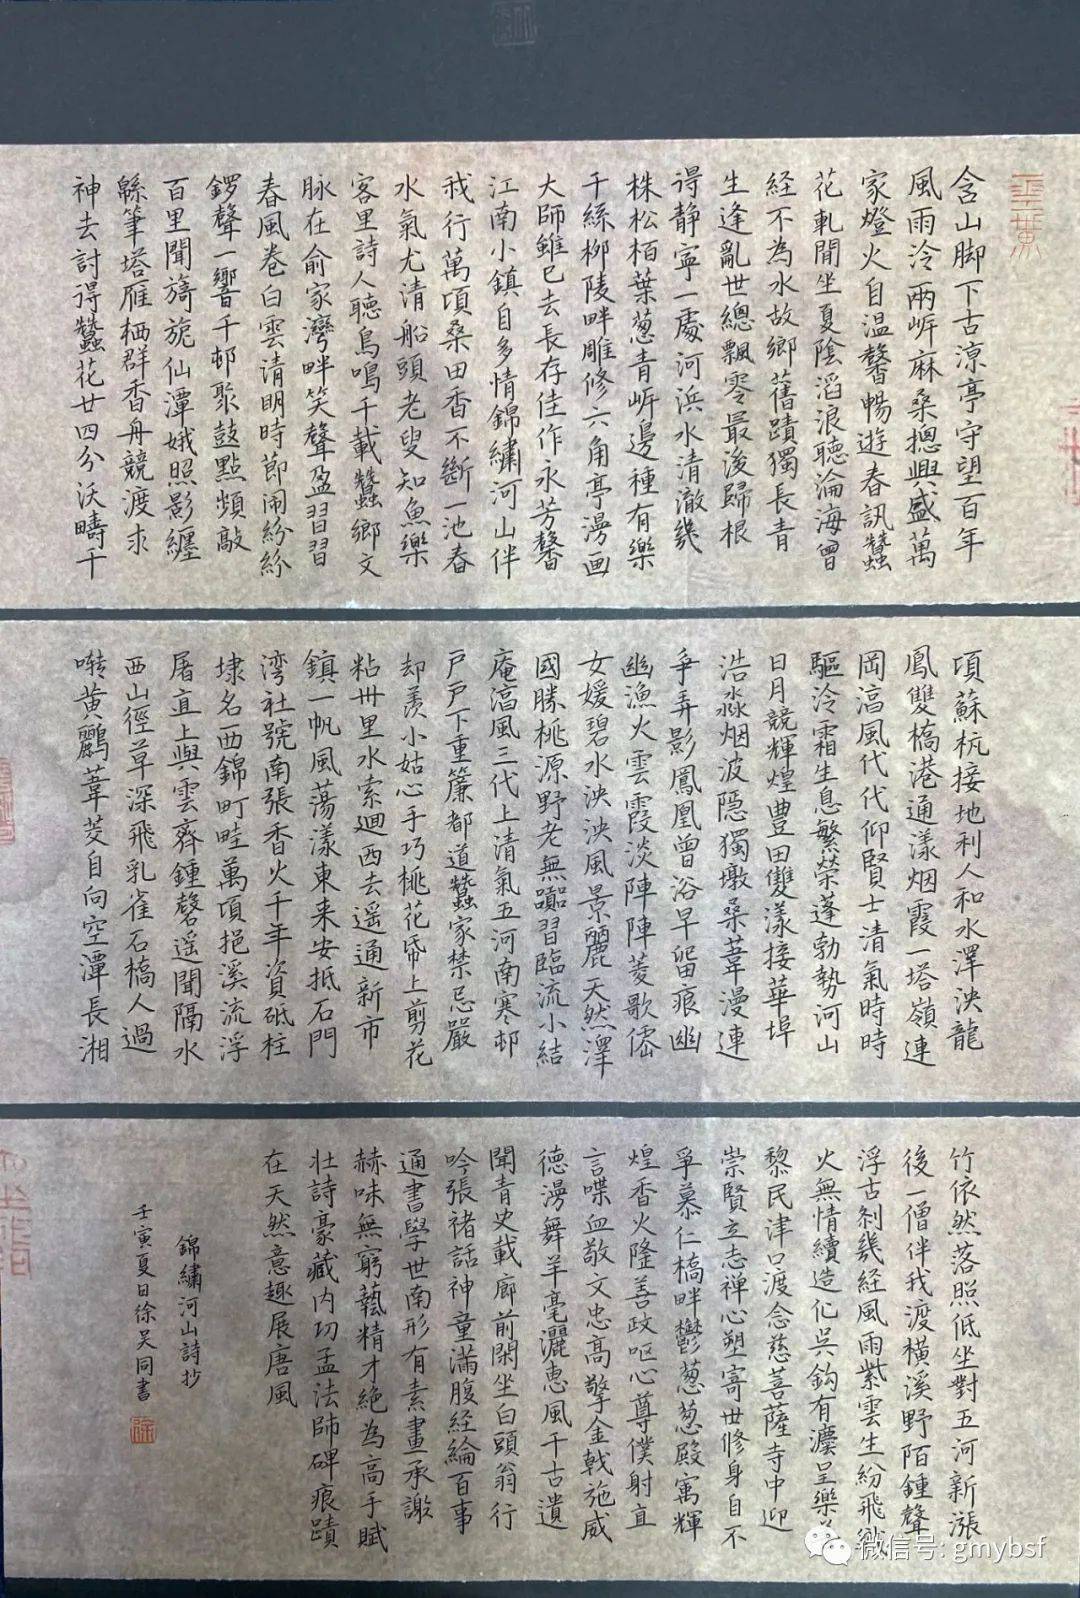 含山脚下古涼亭守望百年
風雨冷兩岍麻桑揔興盛萬
家燈火自温馨暢遊春訊蠶
花軋閒坐夏陰滔浪聽淪海曾
経不為水故鄉舊蹟獨長青
生逢亂世總飄零最後歸根
得静寧一處河浜水清澈幾
株松栢葉葱青岍邊種有樂
千絲柳陵畔雕修六角亭漫画
大師雖已去長存佳作永芳馨
江南小鎮自多情錦繡河山伴
我行萬頃桑田香不斷一池春
水氣尤清船頭老叟知魚樂
客里詩人聴鳥鳴千載蠶鄉文
脉在俞家灣畔笑聲盈習習
春風卷白雲清明時節闹紛紛
鑼聲一響千邨聚鼓點頻敲
百里聞旖旎仙潭娥照影纏
緜筆塔雁栖群香舟競渡求
神去討得蠶花廿四分沃疇千
頃蘇杭接地利人和水澤泱龍
鳳雙橋港通漾烟霞一塔嶺連
岡高風代代仰賢士清氣時時
驅冷霜生息繁榮蓬勃勢河山
日月競輝煌豊田雙漾接華埠
浩淼烟波隐獨墩桑葦漫連
争弄影鳳凰曾浴早留痕幽
幽漁火雲霞淡陣陣菱歌儒
女媛碧水泱泱風景麗天然澤
國勝桃源野老無嚻習臨流小結
庵高風三代上清氣五河南寒邨
戸戸下重簾都道蠶家禁忌嚴
却羡小姑心手巧桃花帋上剪花
粘卅里水索迴西去遥通新市
鎮一帆風蕩漾東来安抵石門
湾社號南張香火千年資砥柱
埭名西錦町畦萬頃挹溪流浮
屠直上與雲齊鍾磬遥聞隔水
西山徑草深飛乳雀石橋人過
啭黄鸝葦茭自向空潭長湘
竹依然落照低坐對五河新漲
後一僧伴我渡橫溪野陌鍾聲
浮古刹幾経風雨紫雲生紛飛
火無情續造化吳鈎有灋呈樂
黎民津口渡念慈菩薩寺中迎
崇賢立志禅心塑寄世修身自不
爭慕仁橋畔鬱葱葱殿寓輝
煌香火隆善政呕心尊僕射直
言喋血敬文忠高擎金戟施威
德漫舞羊毫灑惠風千古遺
聞青史載廊前閑坐白頭翁行
吟張褚話神童滿腹経綸百事
通書學世南形有素畫承謝
赫味無窮藝精才絶為高手賦
壮詩豪藏内功孟法師碑痕蹟
在天然意趣展唐風
錦繡河山詩抄
壬寅夏日徐吴同書
微信号: gmybsf